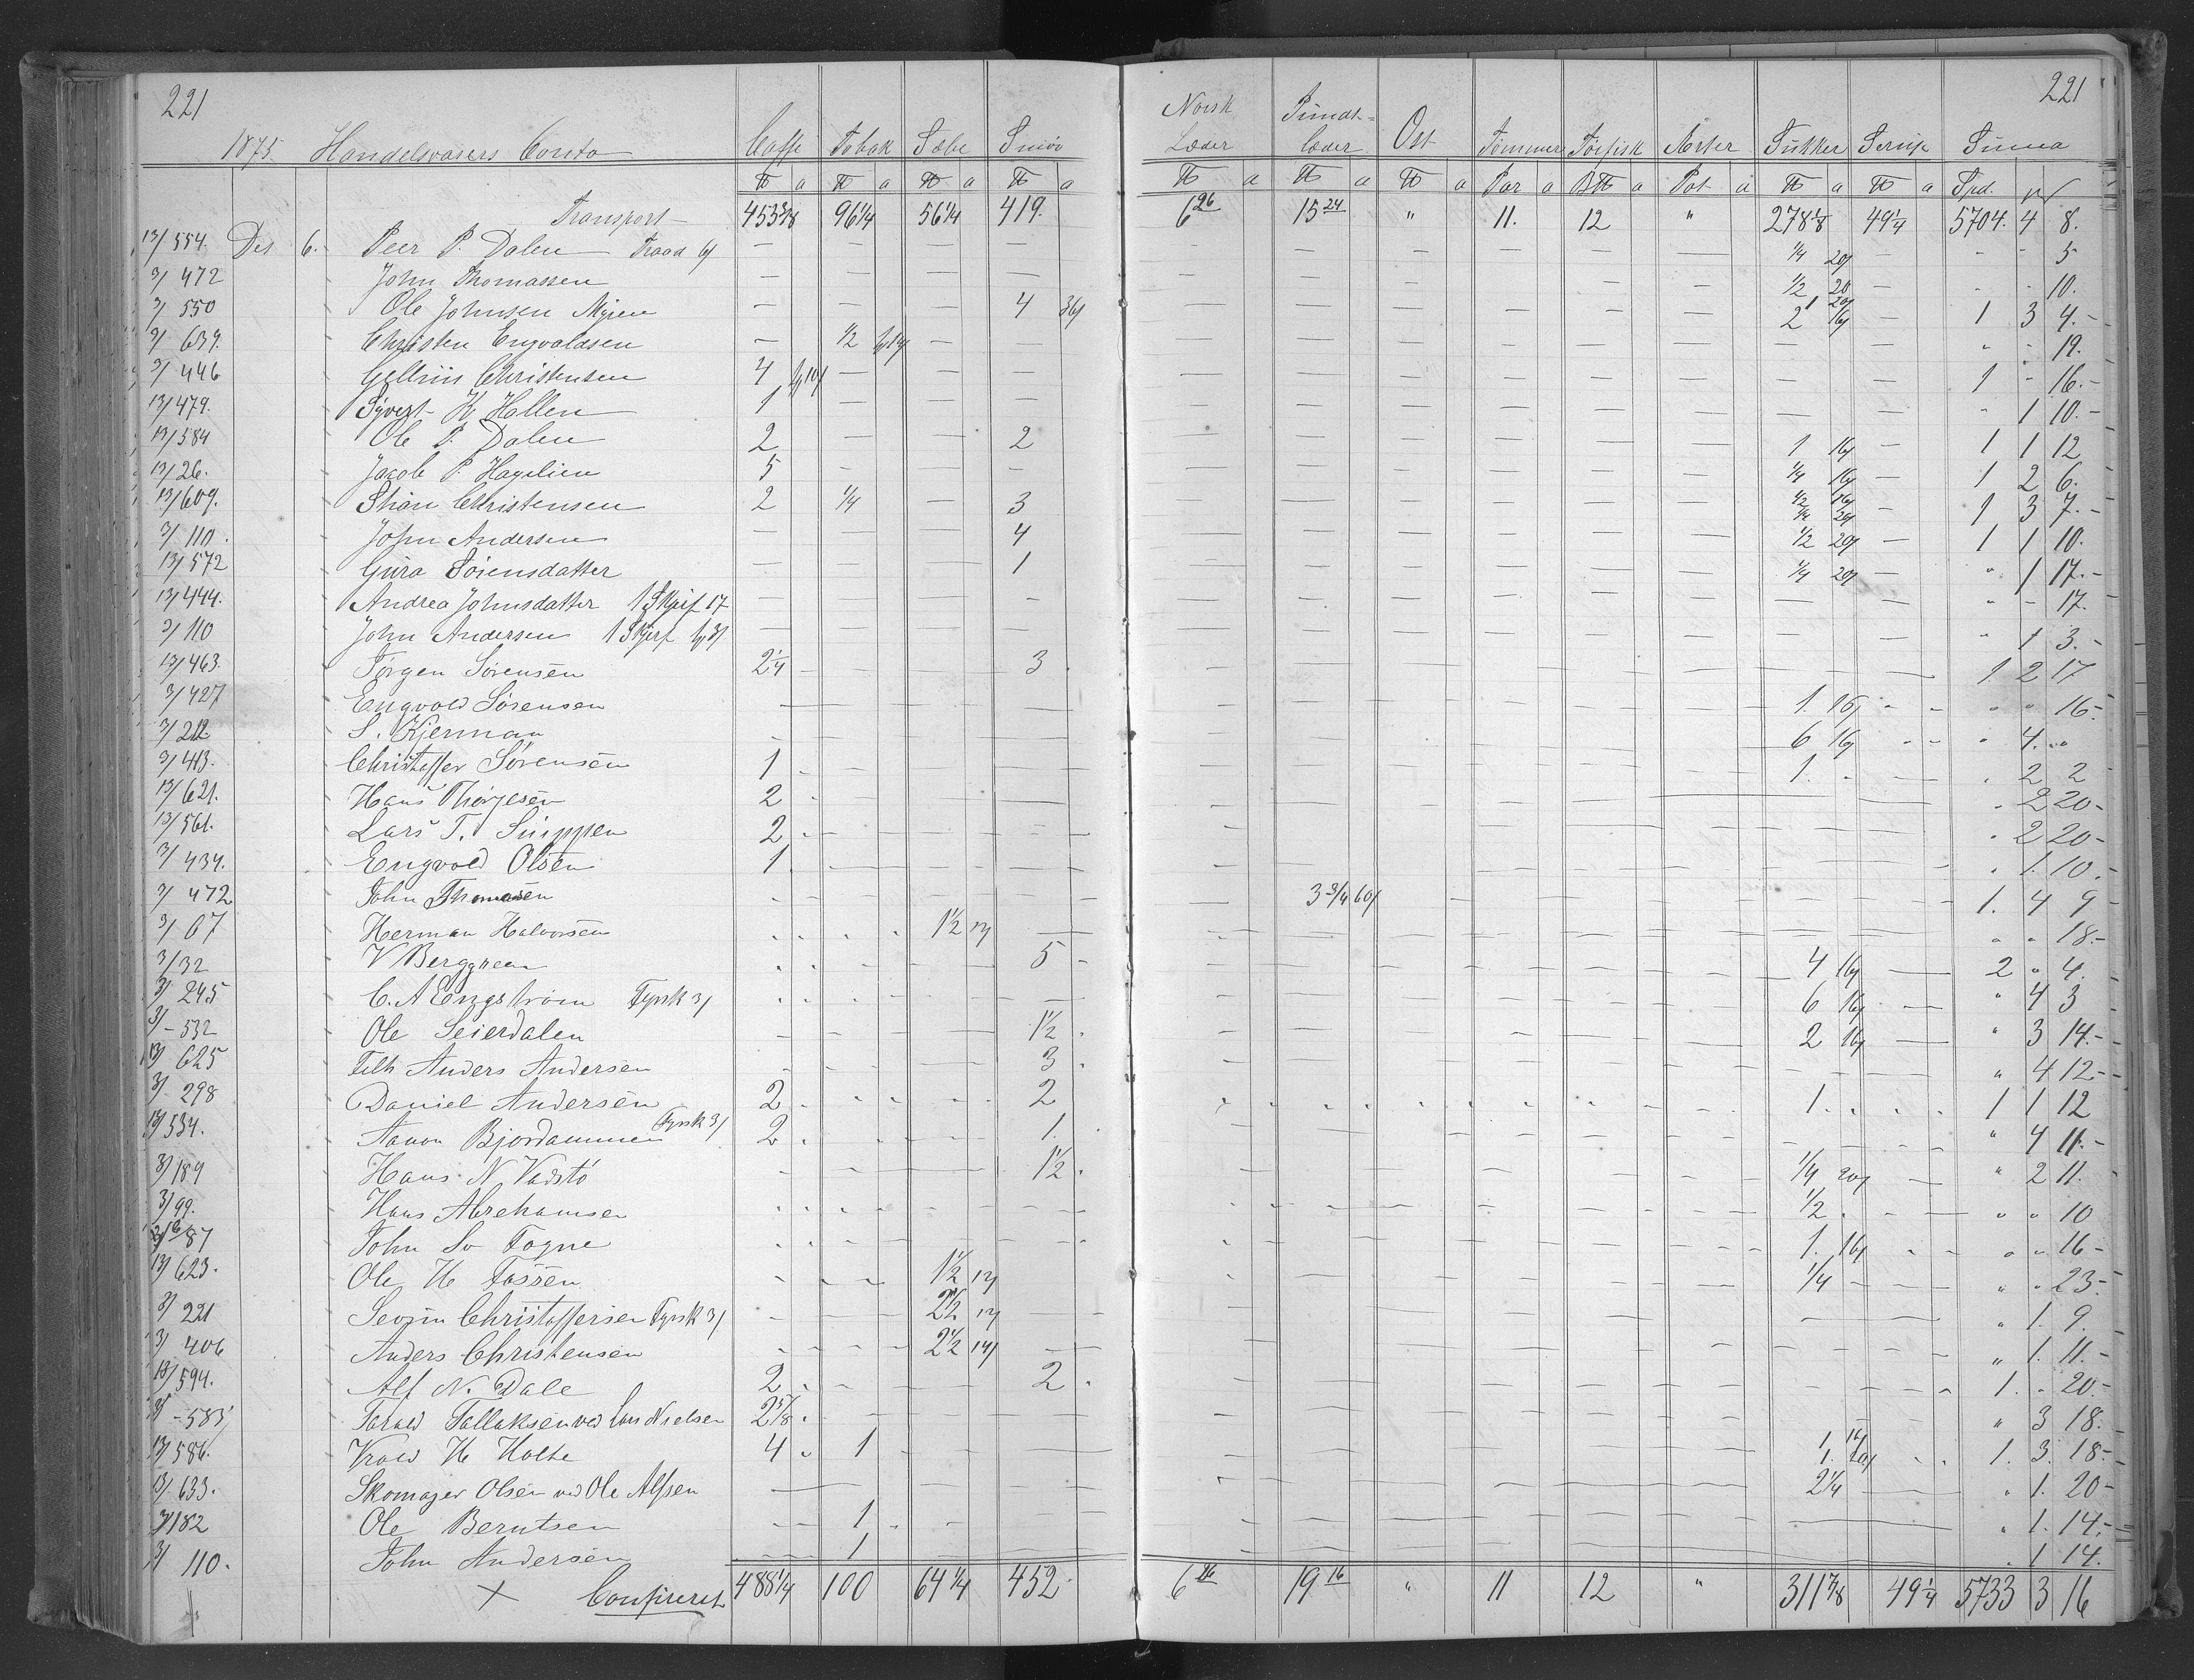 221 221
1875 Handelsvarers Conto Caffe Tobak Sæbe Smiör Norsk Læder Pundt= læder Ost Tömmer Törfisk Ærter Sukker Sirup Summa
℔ a ℔ a ℔ a ℔ a ℔ a ℔ a ℔ a Par a B℔ a Pot a ℔ a ℔ a Spd.
Transport 453 3/8 96 1/4 56 1/4 419. 6 26 15 24 " 11. 12 " 278 1/8 49 1/4 5704. 4 8.
13/ 554. Des 6. Peer P. Dalen Traad 6/ 1/4 20/ 5
3/ 472 John Thomassen 1/2 20 10.
3/ 550 Ole Johnsen Myren 4 36/ 1 20/ 2 16/ 1 3 4.
3/ 639. Christen Engvoldsen 1/2 19.
3/ 446 Gellius Christensen 4 1 - 16.
13/ 479. Syvert K. Hallen 1 " 1 10.
13/ 584 Ole P. Dalen 2 2 1 16/ 1 1 12
13/ 26. Jacob P. Hagelien 5 1/4 16/ 1 2 6.
13/ 609. Stian Christensen 2 1/4 3 1/2 16/ 1/4 20/ 1 3 7.
3/ 110. John Andersen 4 1/2 20/ 1 1 10.
13/ 572 Gura Sörensdatter 1 1/4 20/ " 1 17.
13/ 444. Andrea Johnsdatter 1 Skjerf 17 " - 17.
3/ 110 John Andersen 1 Skjerf " 1 3.
13/ 463. Jörgen Sörensen 2 1/4 3 1 2 17
3/ 427 Engvold Sörensen 1. 16/ " " 16.
3/ 212. S. Kjerman 6 16/ " 4. "
3/ 413. Christoffer Sörensen 1 1. . 2 2
13/ 621. Hans Thorjesen 2 . 2 20
13/ 561. Lars T. Suippen 2 . 2 20
3/ 434. Engvold Olsen 1 . 1. 10.
3/ 472 John Thomasen 3 3/4 60/ 1. 4 9
3/ 67 Herman Halvorsen 1 1/2 12/ " " 18.
3/ 32 V Berggreen 5 4 16/ 2 " 4.
3/ 245 C. A Engström Fyrstk 3/ 6 16/ " 4 3
3/ - 532 Ole Seierdalen 1 1/2 2 16/ " 3 14.
13/ 625 Felh Anders Andersen 3 " 4 12
3/ 298 Daniel Andersen 2 2 1. 1 1 12
13/ 534. Aanon Bjordammen Fyrstk 3/ 2 1. " 4 11.
3/ 189 Hans N. Vadstö 1 1/2 1/4 20/ " 2 11.
3/ 99. Hans Abrehamsen 1/2 " " 10
87 John Sv Fogne 1. 16/ " " 16
13/ 623. Ole H Fossen 1 1/2 12/ 1/4 " " 23.
3/ 221 Sevrin Christoffersen Fyrstk 3/ 2 1/2 12/ " 1. 9.
3/ 406 Anders Christensen 2 1/2 14/ " 1. 11.
13/ 594. Alf N. Dale 2 2 1. " 20.
- 583 Tarald Tallaksen ved Lars Nielsen 2 5/8 " 3 18.
13/ 586. Kroed H Holte 4 1 1 16/ 1. 20/ 1. 3. 18.
13/ 633. Skomager Olsen ved Ole Alfsen 2 1/4 " 1. 20
3/ 182 Ole Berntsen 1 . 1. 14.
3/ 110. John Andersen 1 . 1 14.
× Confereret 488 1/4 100 64 1/4 452 6 26 19 16 " 11 12 " 311 7/8 49 1/4 5733 3 16